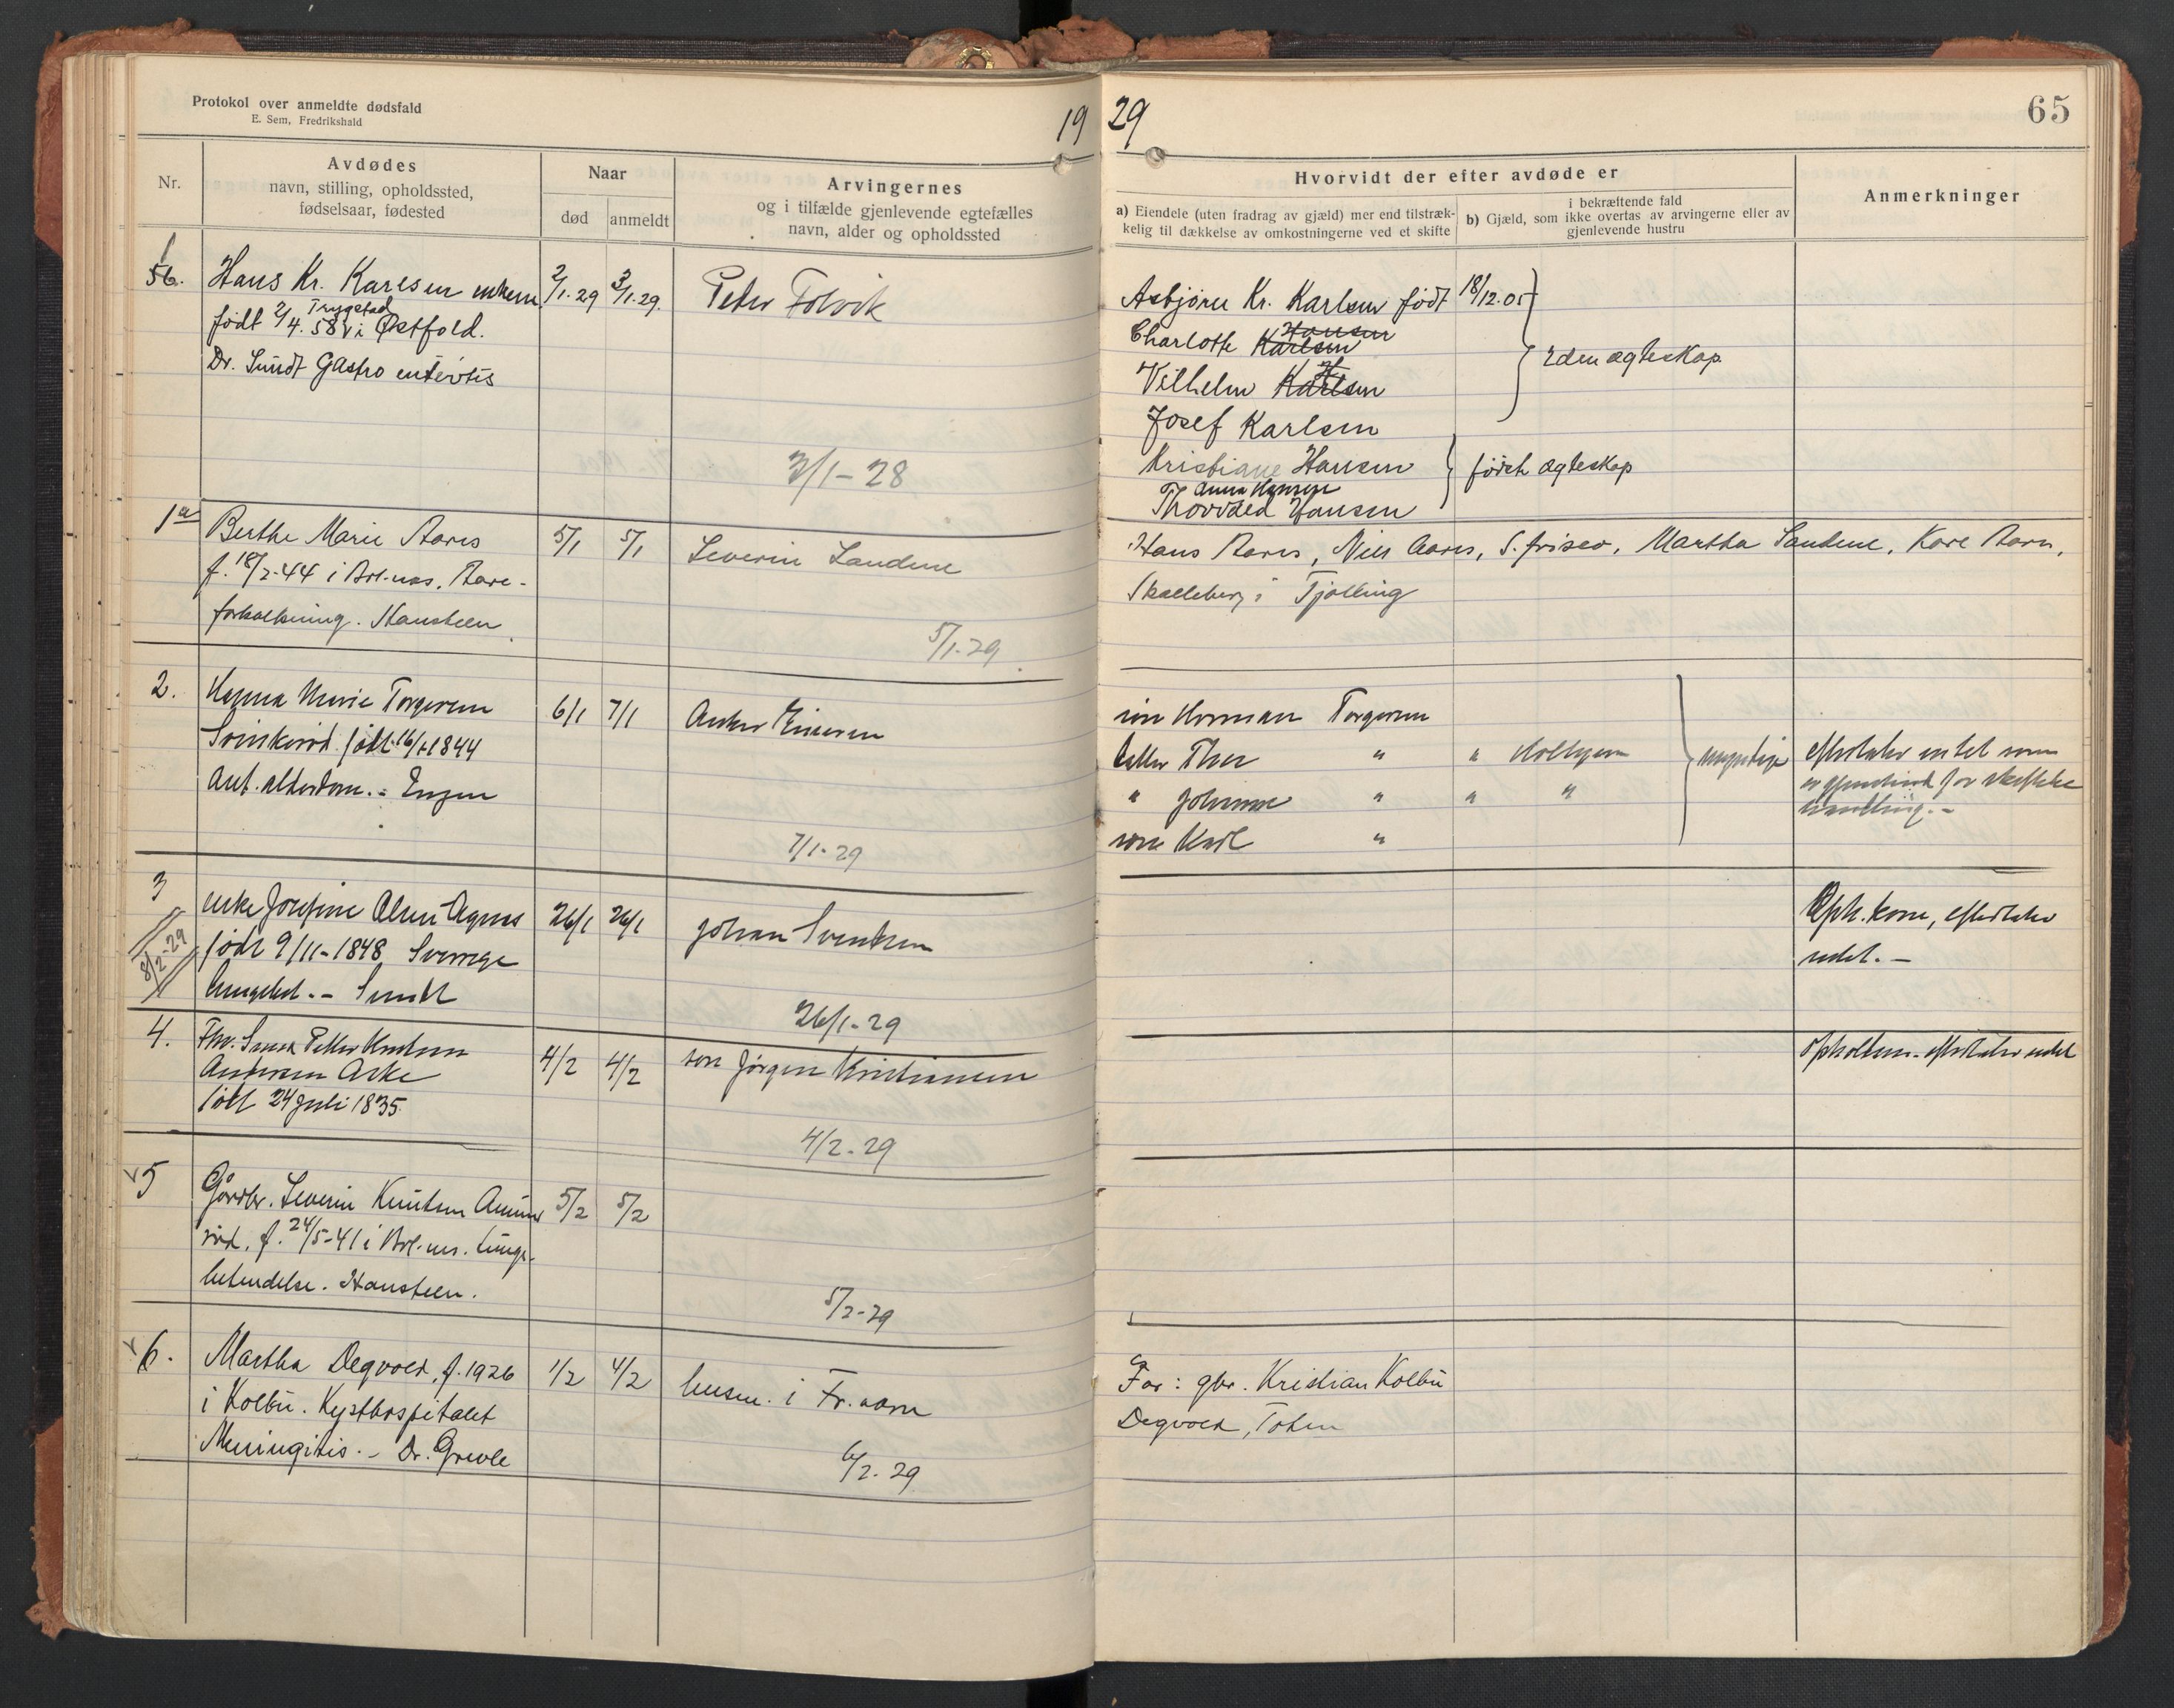 Protokol over anmeldte dødsfald
E. Sem, Fredrikshald
19 29
65
Nr.
Avdødes
navn, stilling, opholdssted,
fødselsaar, fødested
Naar
død
anmeldt
Arvingernes
og i tilfælde gjenlevende egtefælles
navn, alder og opholdssted
Hvorvidt der efter avdøde er
a) Eiendele (uten fradrag av gjæld) mer end tilstræk-
kelig til dækkelse av omkostningerne ved et skifte
i bekræftende fald
b) Gjæld, som ikke overtas av arvingerne eller av
gjenlevende hustru
Anmerkninger
1
56.
Hans Kr. Karlsen
født 2/4. 58 i Trygstad Østfold.
Dr. Sundt Gastro enteritis
2/1.29
3/1.29.
Peter Folvik
3/1-28
Asbjørn Kr. Karlsen født 18/12.05
Charlotte Karlsen Hansen
Vilhelm Karlsen H
Josef Karlsen
2den ægteskap
Kristiane Hansen
Anna Hansen
Thorvald Hansen
første ægteskap
1a
Berthe Marie Aares
f. 18/2-44 i Brl.nes. Aare-
forkalkning. Hansteen
5/1
5/1
Severin Sandene
5/1-29
Hans Aares, Niels Aares, S. Frisco, Martha Sandene, Kare Aares,
Skalleberg i Tjølling
2.
Hanna Marie Torgersen
født 16/1 1844
Ant. alderdom. - Enger
6/1
7/1
Anker Einersen
7/1-29
søn Herman Torgersen
datter Thea " "
" Johanne " " "
søn Karl "
myndige
efterlater intet som
er gjenstand for skifte
handling. -
3
8/2-29
enke Josefine Olsen Agnes
født 9/11-1848 Sverige
Sundt
26/1
26/1
Johan Svendsen
26/1-29
Oph. kone, efterlater
intet. -
4.
Andersen Aske
født 24 juli 1835
4/2
4/2
søn Jørgen Kristiansen
4/2-29
efterlater intet
v 5
Gårdbr. Severin Knutsen
rød. f. 24/5-41 i Brl.nes. Lunge-
betendelse. Hansteen.
5/2
5/2
5/2-29
v 6.
Martha Degvold, f. 1926
i Kolbu. Kysthospitalet
Meningitis. - Dr. Grevle
1/2
4/2
i Fr.værn
6/2-29
Far: gbr. Kristian Kolbu
Degvold, Toten